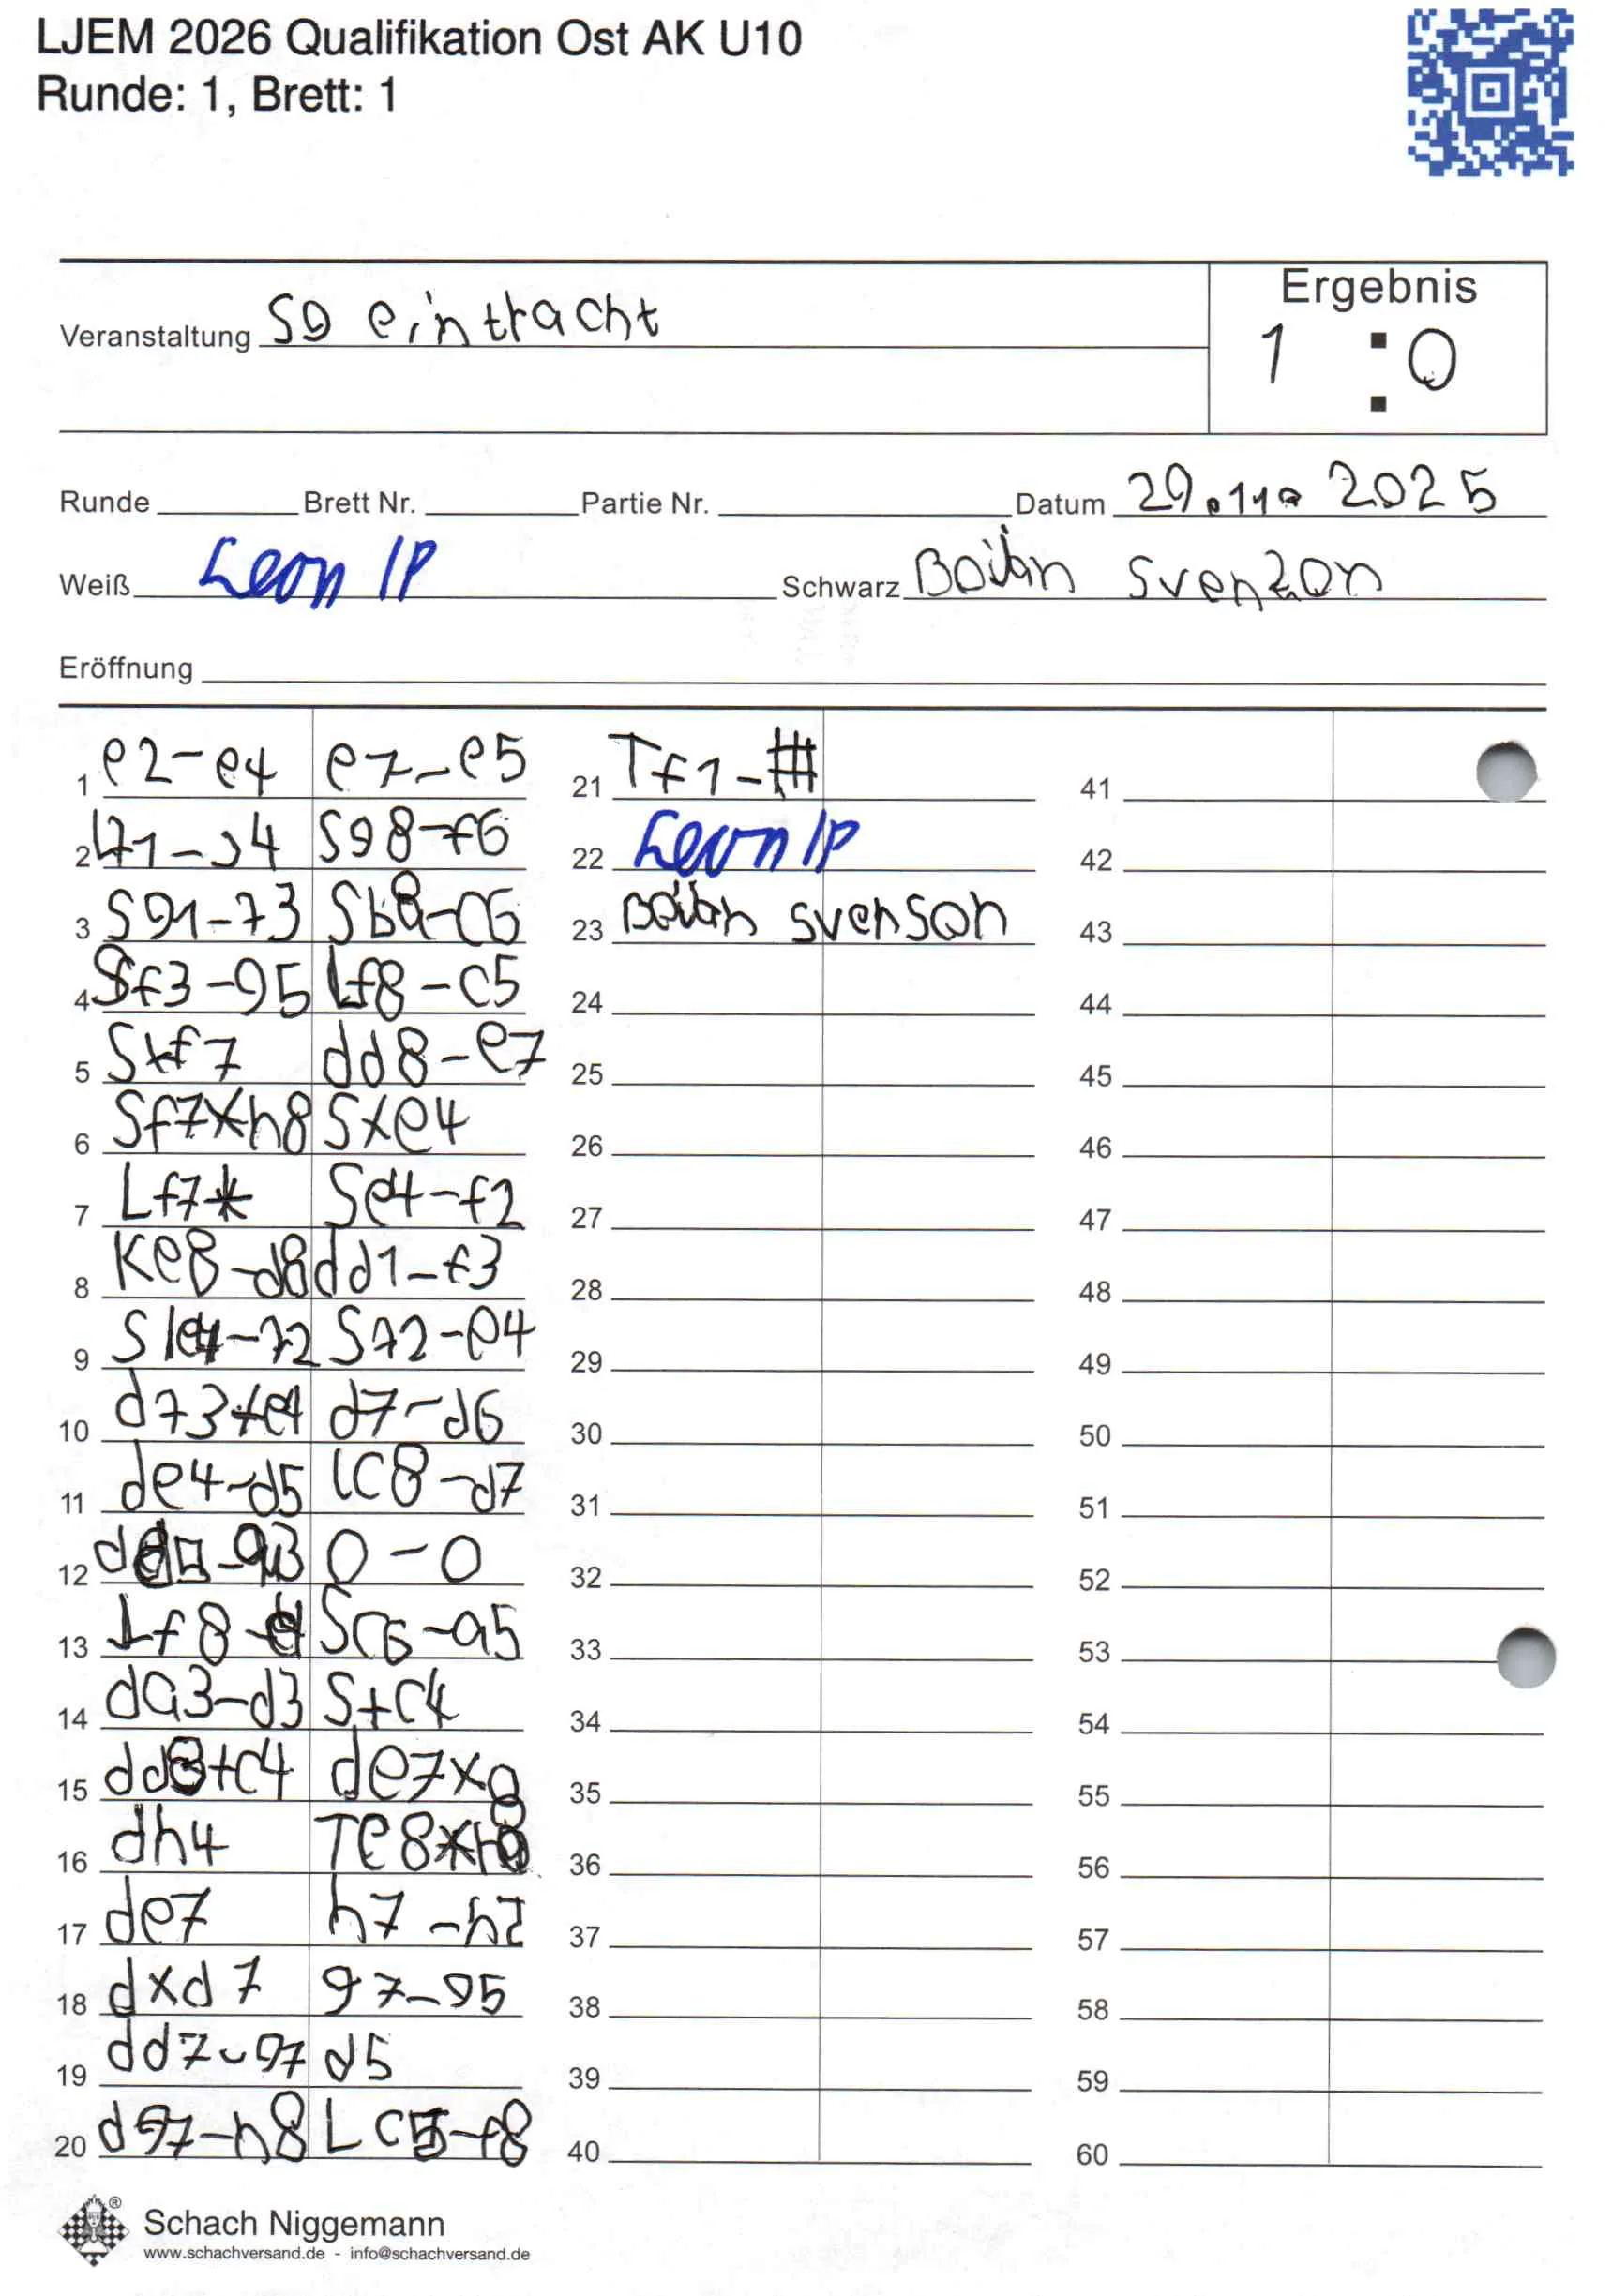 LJEM 2026 Qualifikation Ost AK U10
Runde: 1, Brett: 1
Ergebnis
Veranstaltung SG eintracht
1 : 0
Runde Brett Nr. Partie Nr. Datum 29.11. 2025
Weiß Leon IP Schwarz Svenzon
Eröffnung
1 e2-e4 e7-e5 21 Tf1-# 41
2 S98-f6 22 Leon IP 42
3 S91-f3 Sb8-c6 23 svenson 43
4 Sf3-95 Lf8-c5 24 44
5 Sxf7 dd8-e7 25 45
6 Sf7xh8 Sxe4 26 46
7 Lf7 Se4-f2 27 47
8 Ke8-d8 dd1-f3 28 48
9 Sf2-e4 29 49
10 df3xe4 d7-d6 30 50
11 de4-d5 lC8-d7 31 51
12 0-0 32 52
13 Lf8- Sc6-a5 33 53
14 da3-d3 S+c4 34 54
15 dd3+c4 de7x 35 55
16 dh4 Te8xh8 36 56
17 de7 h7-h2 37 57
18 dxd7 97-95 38 58
19 dd7-97 d5 39 59
20 d97-h8 Lc5-f8 40 60
® Schach Niggemann
www.schachversand.de - info@schachversand.de